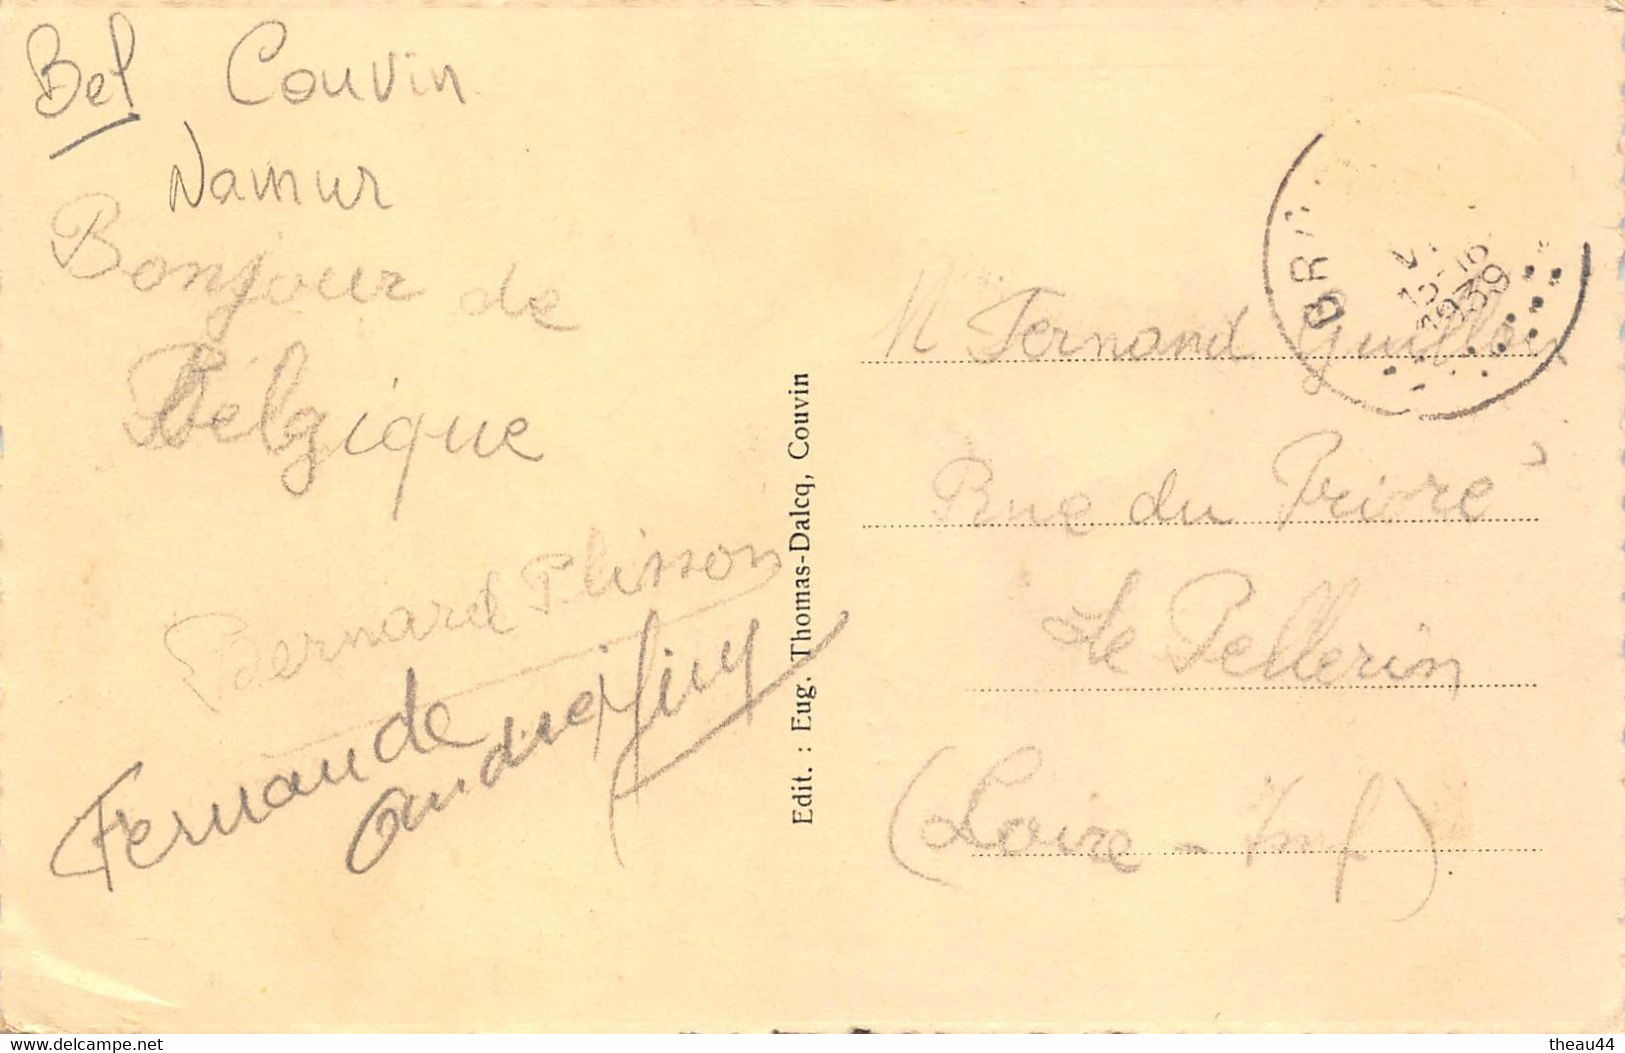 Bel Couvin
Namur
Bonjour de
Belgique
Bernard Plisson
Fernande
Edit. : Eug. Thomas-Dalcq, Couvin
BR
1939
Mr Fernand Guillou
Rue du Prioré
Le Pellerin
(Loire - Inf)
www.delcampe.net
theau44